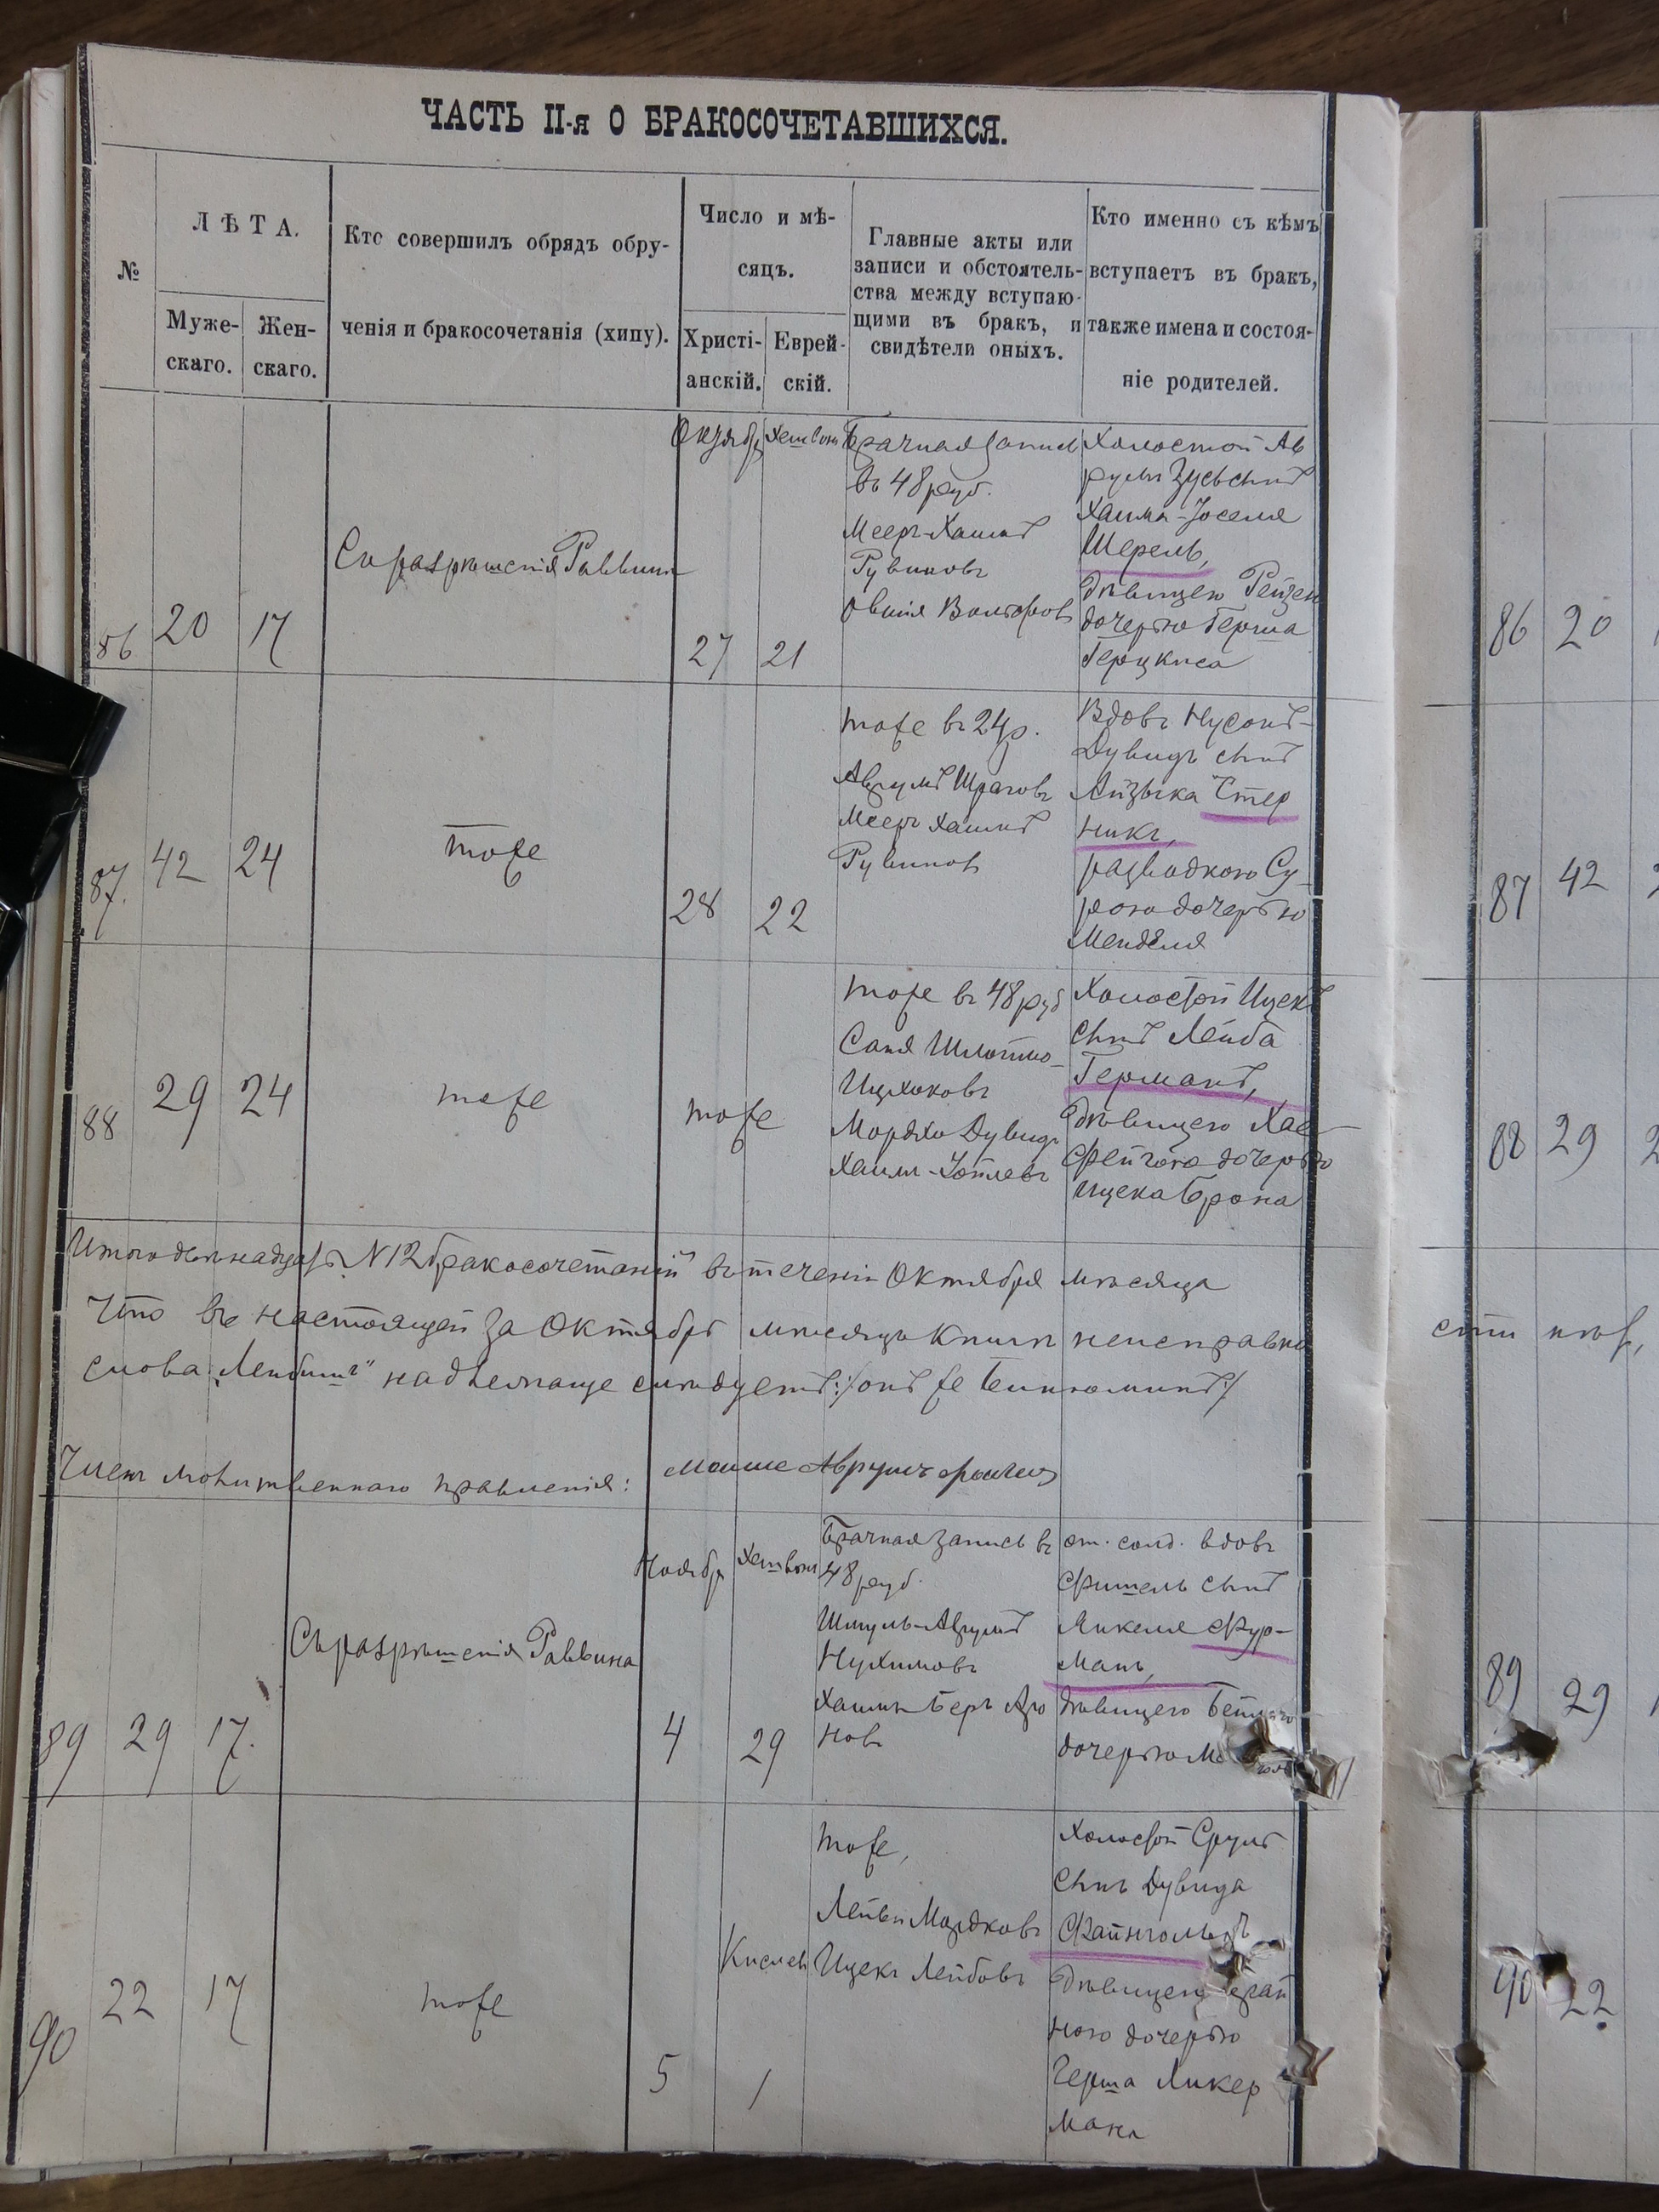 ЧАСТЬ II-я О БРАКОСОЧЕТАВШИХСЯ.
№
ЛѢТА.
Муже-
скаго.
Жен-
скаго.
Кто совершилъ обрядъ обру-
ченія и бракосочетанія (хипу).
Число и мѣ-
сяцъ.
Христі-
анскій.
Еврей-
скій.
Главные акты или
записи и обстоятель-
ства между вступаю-
щими въ бракъ, и
свидѣтели оныхъ.
Кто именно съ кѣмъ
вступаетъ въ бракъ,
также имена и состоя-
ніе родителей.
86
20
17
Съ разрѣшенія Раввина
Октябр
27
Хешвон
21
Брачная запись
въ 48 руб.
Мееръ-Хаимъ
Рувиновъ
Овшія Вольфовъ
Холостой Ав
румъ Зусь сынъ
Хаима-Іоселя
Шерель,
дѣвицею Рейзею
дочерью Герша
Герцкиса
87.
42
24
тоже
28
22
тоже въ 24 р.
Аврумъ Шраговъ
Мееръ Хаимъ
Рувиновъ
Вдовъ Нусонъ-
Дувидъ сынъ
Айзыка Стер
никъ,
разводкою Су-
рою дочерью
Менделя
88
29
24
тоже
тоже
тоже въ 48 руб
Саня Шлоймо-
Ицхоковъ
Мордко Дувидъ
Хаимъ-Іойлевъ
Холостой Ицекъ
сынъ Лейба
Германъ,
дѣвицею Хае-
Фейгою дочерью
Ицека Брона
Итого двѣнадцать N 12 бракосочетаній въ теченіи Октября мѣсяца
Что въ настоящей за Октябрь мѣсяцъ книги неисправно
слова „Лейбишъ" надлежаще слѣдуетъ :/онъ же Бениоминъ/
Членъ молитвеннаго правленія: Моише Аврумъ
89
29
17.
Съ разрѣшенія Раввина
Ноябрь
4
Хешвон
29
Брачная запись въ
48 руб.
Шмуль-Аврумъ
Нухимовъ
Хаимъ Беръ Аро
новъ
от. солд. вдовъ
Фишель сынъ
Янкеля Фур-
манъ,
дѣвицею
дочерью
90
22
17
тоже
5
Кислевъ
1
тоже,
Лейви Мордковъ
Ицекъ Лейбовъ
Холостой Сруль
сынъ Дувида
Файнгольдъ
дѣвицею
ною дочерью
Герша Ликер
мана
86
20
87
42
88
29
89
29
90
22